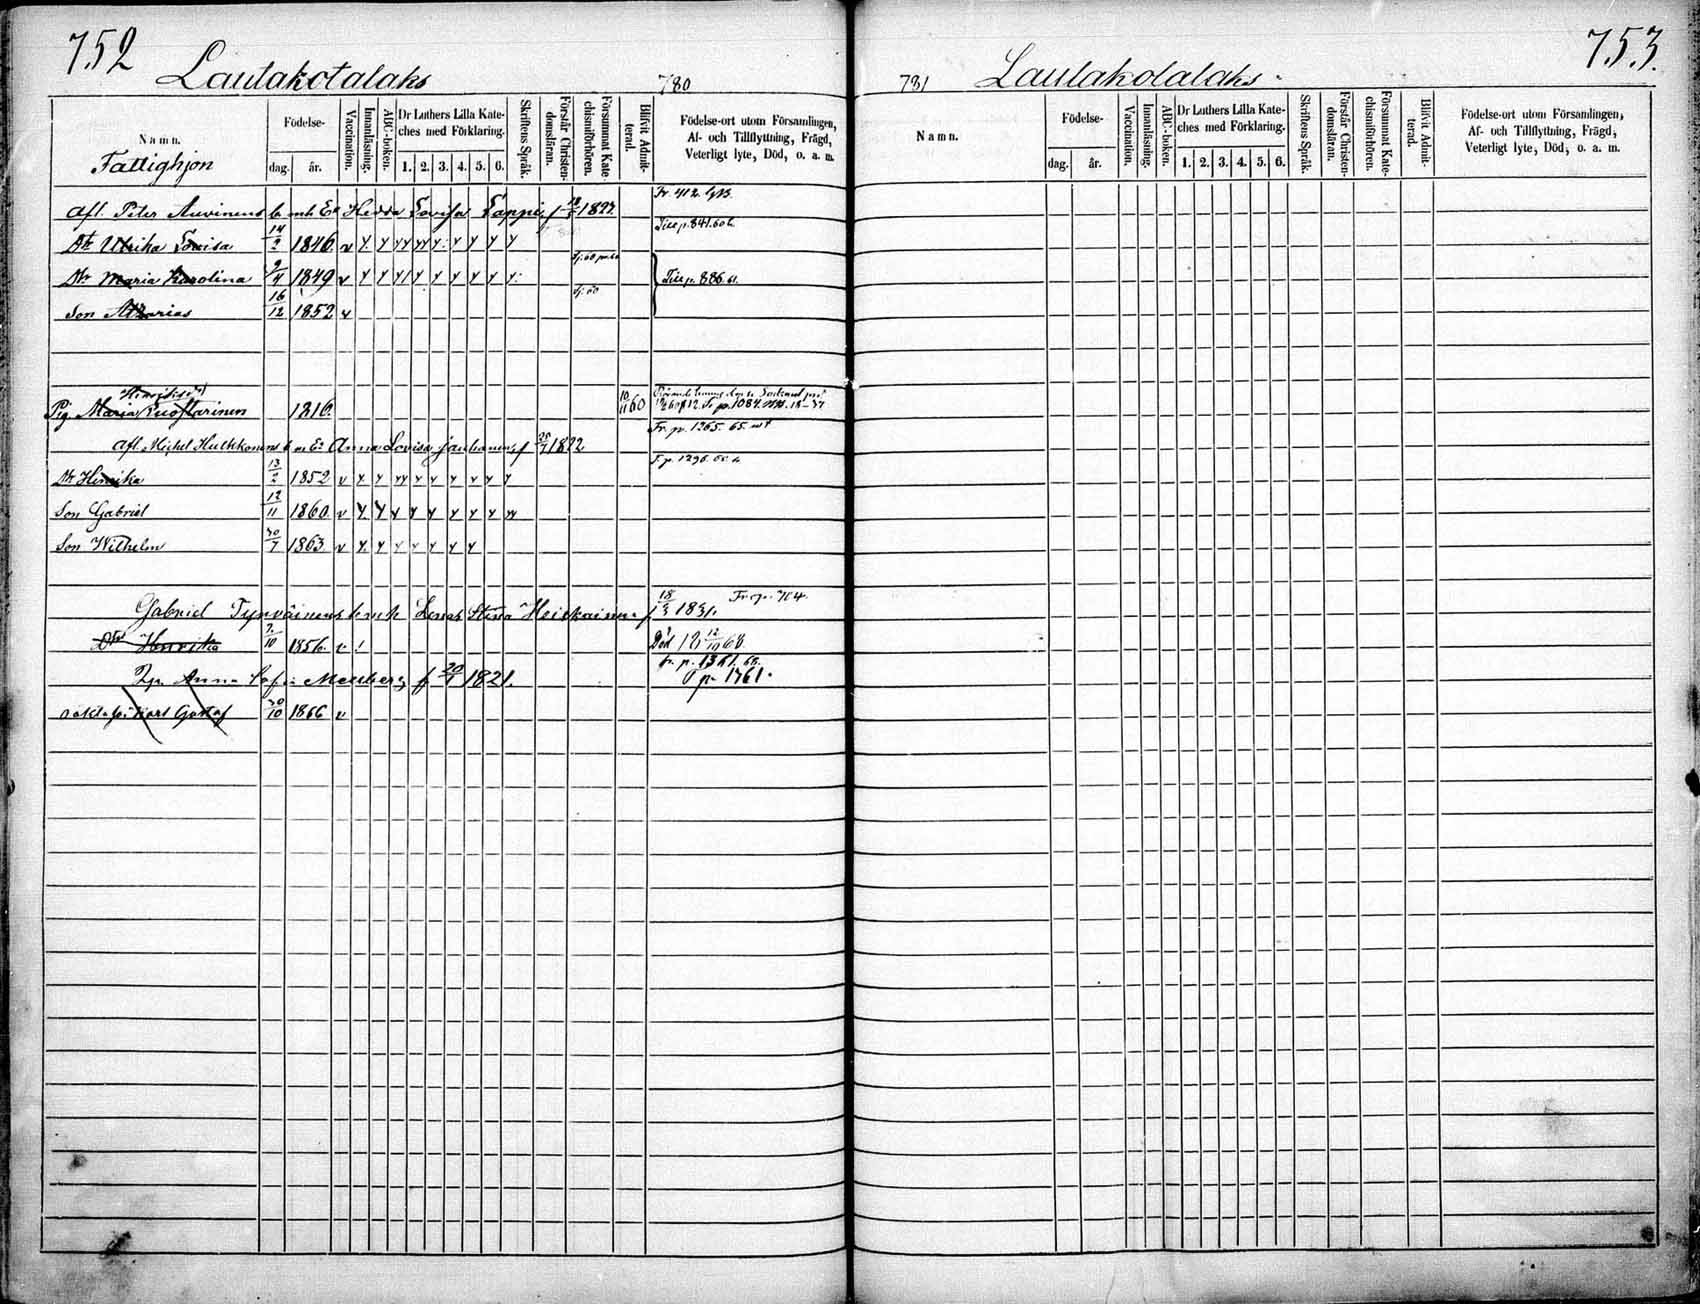 752
Lautakotalaks
780
Namn.
Fattighjon
Födelse-
dag.
år.
Vaccination.
Innanläsning.
ABC-boken.
Dr Luthers Lilla Kate-
ches med Förklaring.
1. 2. 3. 4. 5. 6.
Skriftens Språk.
Förstår Christen-
domsläran.
Försummat Kate-
chismiförhören.
Blifvit Admit-
terad.
Födelse-ort utom Församlingen,
Af- och Tillflyttning, Frägd,
Veterligt lyte, Död, o. a. m.
Fr. 412.
Afl. Peter Auvinens Hedda Lovisa Lappi, f 1827.
Dr Ulrika Lovisa 14/2 1846. v
Till p. 841.60
Dr Maria Karolina 9/4 1849 v
Till p. 886. 61.
Son Asarias 16/12 1852 v
Pig. Maria Ruottarinen 1816. 10/11 60
Fr. p. 1084.
Fr. p. 1265. 65.
Afl. Michel Hulkkonens Anna Lovisa f 25/7 1822
Dr Henrika 13/2 1852 v
T. p. 1296.
Son Gabriel 12/11 1860 v
Son Wilhelm 30/7 1863 v
Gabriel Tyrväinens Lena Stina Heiskainen f 18/3 1831. Fr. p. 704.
Dr Henrika 2/10 1856. v Död 12/10 68.
fr. p. 1361. 66.
Anna Sofia f 20/1 1821. p. 1761.
Karl Gustaf 30/10 1866 v
753.
781
Lautakotalaks.
Namn.
Födelse-
dag.
år.
Vaccination.
Innanläsning.
ABC-boken.
Dr Luthers Lilla Kate-
ches med Förklaring.
1. 2. 3. 4. 5. 6.
Skriftens Språk.
Förstår Christen-
domsläran.
Försummat Kate-
chismiförhören.
Blifvit Admit-
terad.
Födelse-ort utom Församlingen,
Af- och Tillflyttning, Frägd,
Veterligt lyte, Död, o. a. m.